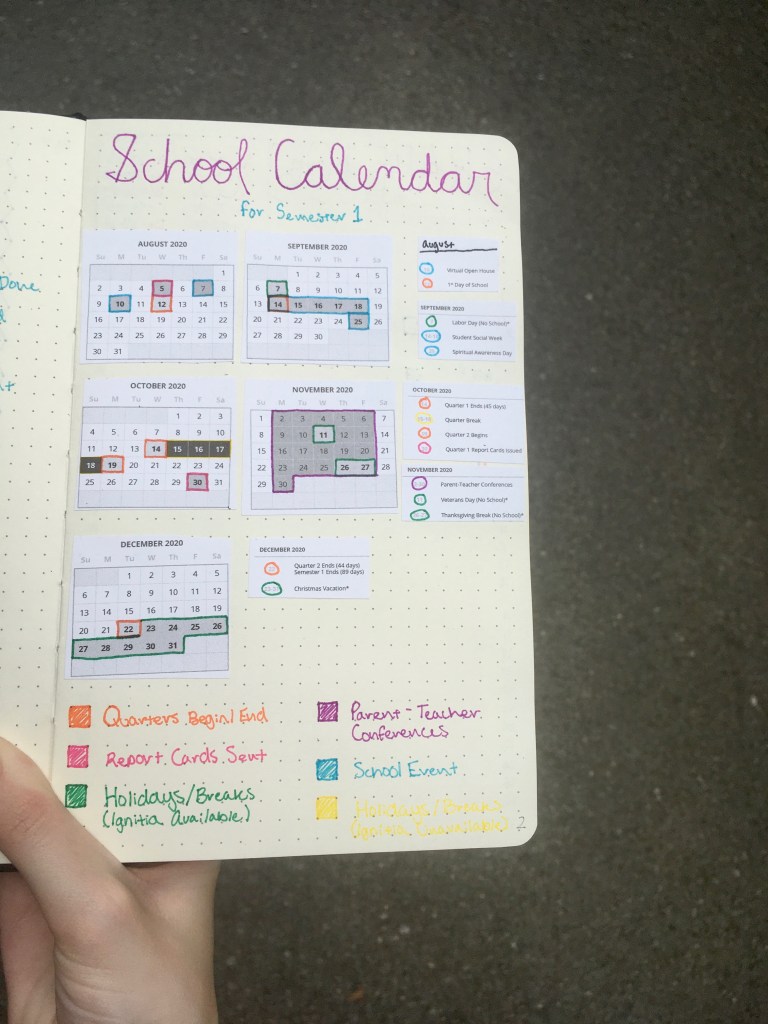 School Calendar
for Semester 1
Done
AUGUST 2020
Su M Tu W Th F Sa
1
2 3 4 5 6 7 8
9 10 11 12 13 14 15
16 17 18 19 20 21 22
23 24 25 26 27 28 29
30 31
SEPTEMBER 2020
Su M Tu W Th F Sa
1 2 3 4 5
6 7 8 9 10 11 12
13 14 15 16 17 18 19
20 21 22 23 24 25 26
27 28 29 30
august
Virtual Open House
1st Day of School
SEPTEMBER 2020
Labor Day (No School)*
Student Social Week
Spiritual Awareness Day
OCTOBER 2020
Su M Tu W Th F Sa
1 2 3
4 5 6 7 8 9 10
11 12 13 14 15 16 17
18 19 20 21 22 23 24
25 26 27 28 29 30 31
NOVEMBER 2020
Su M Tu W Th F Sa
1 2 3 4 5 6 7
8 9 10 11 12 13 14
15 16 17 18 19 20 21
22 23 24 25 26 27 28
29 30
OCTOBER 2020
Quarter 1 Ends (45 days)
Quarter Break
Quarter 2 Begins
Quarter 1 Report Cards Issued
NOVEMBER 2020
Parent-Teacher Conferences
Veterans Day (No School)*
Thanksgiving Break (No School)*
DECEMBER 2020
Su M Tu W Th F Sa
1 2 3 4 5
6 7 8 9 10 11 12
13 14 15 16 17 18 19
20 21 22 23 24 25 26
27 28 29 30 31
DECEMBER 2020
Quarter 2 Ends (44 days)
Semester 1 Ends (89 days)
Christmas Vacation*
Quarters Begin/End
Report Cards Sent
Holidays/Breaks
(Ignitia Available)
Parent-Teacher
Conferences
School Event
Holidays/Breaks
(Ignitia Unavailable)
2